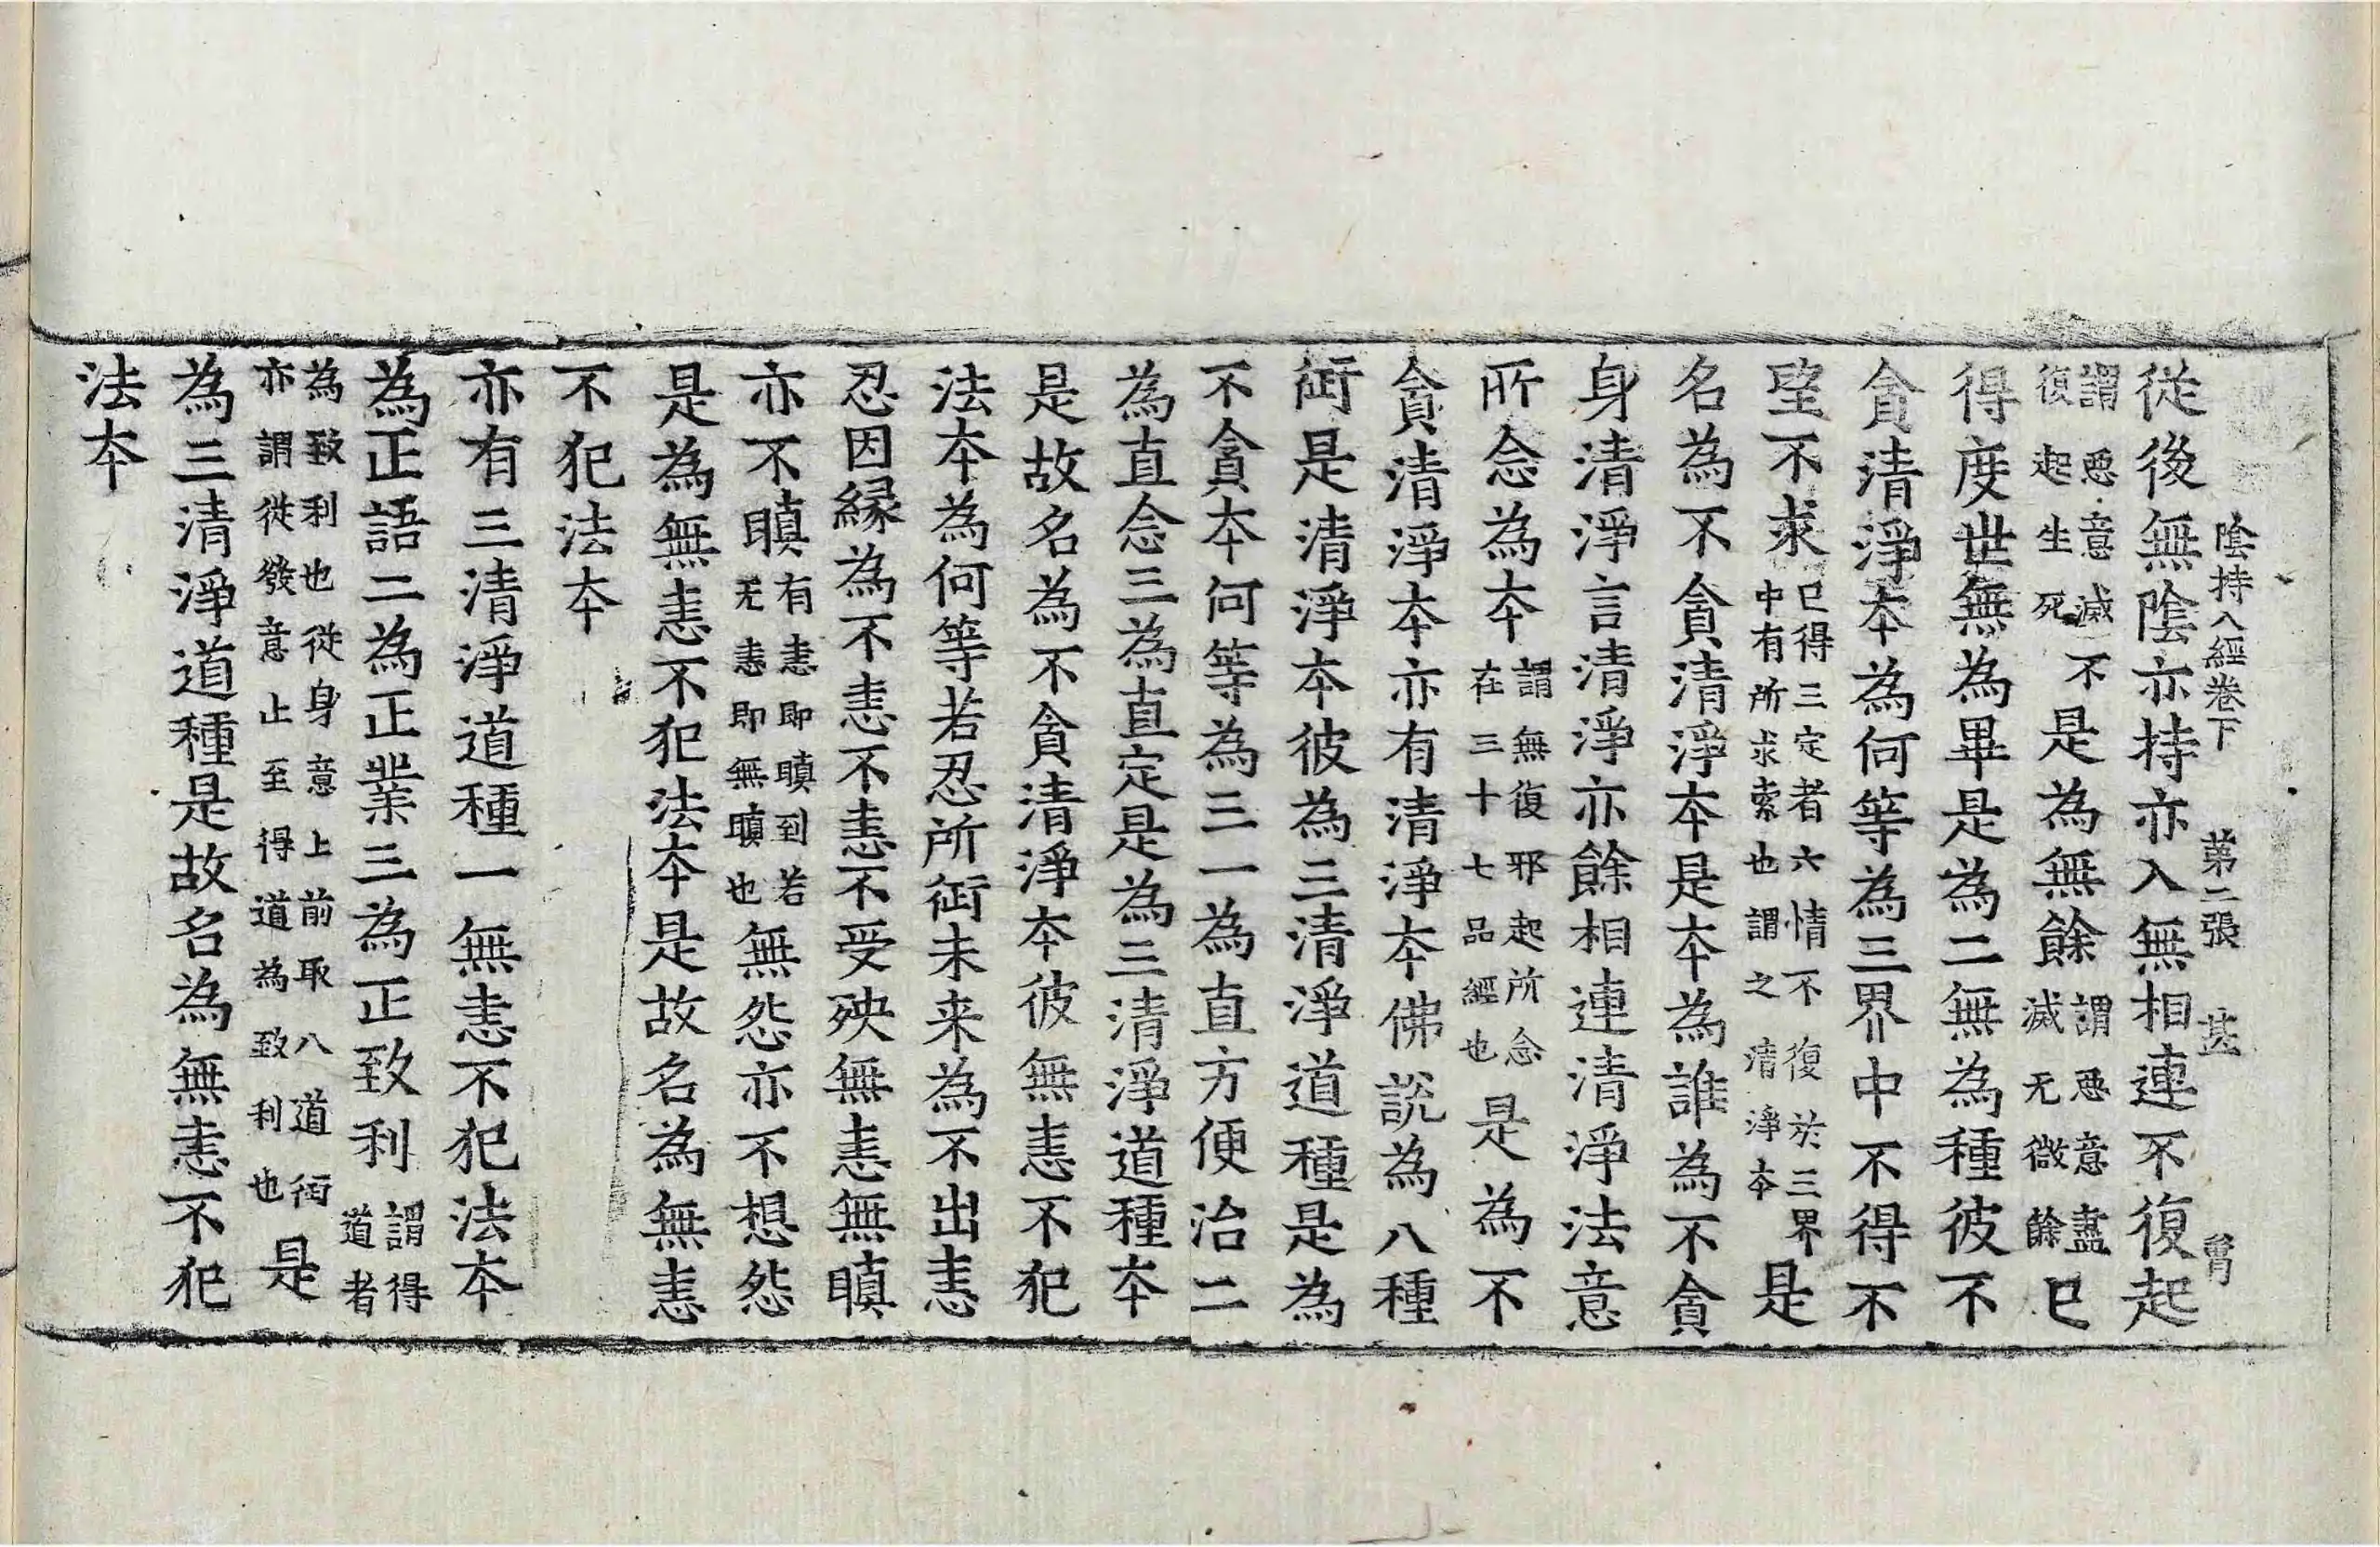 陰持入經卷下　第二張　甚
從後無陰亦持亦入無相連不復起
謂惡意滅不復起生死是為無餘謂惡意盡滅无微餘已
得度世無為畢是為二無為種彼不
貪清淨本為何等為三界中不得不
望不求已得三定者六情不復於三界中有所求索也謂之清淨本是
名為不貪清淨本是本為誰為不貪
身清淨言清淨亦餘相連清淨法意
所念為本謂無復邪起所念在三十七品經也是為不
貪清淨本亦有清淨本佛說為八種
衙是清淨本彼為三清淨道種是為
不貪本何等為三一為直方便治二
為直念三為直定是為三清淨道種本
是故名為不貪清淨本彼無恚不犯
法本為何等若忍所衙未来為不出恚
忍因緣為不恚不恚不受殃無恚無瞋
亦不瞋有恚即瞋到若无恚即無瞋也無怨亦不想怨
是為無恚不犯法本是故名為無恚
不犯法本
亦有三清淨道種一無恚不犯法本
為正語二為正業三為正致利謂得道者
為致利也從身意上前取八道衙亦謂從發意止至得道為致利也是
為三清淨道種是故名為無恚不犯
法本